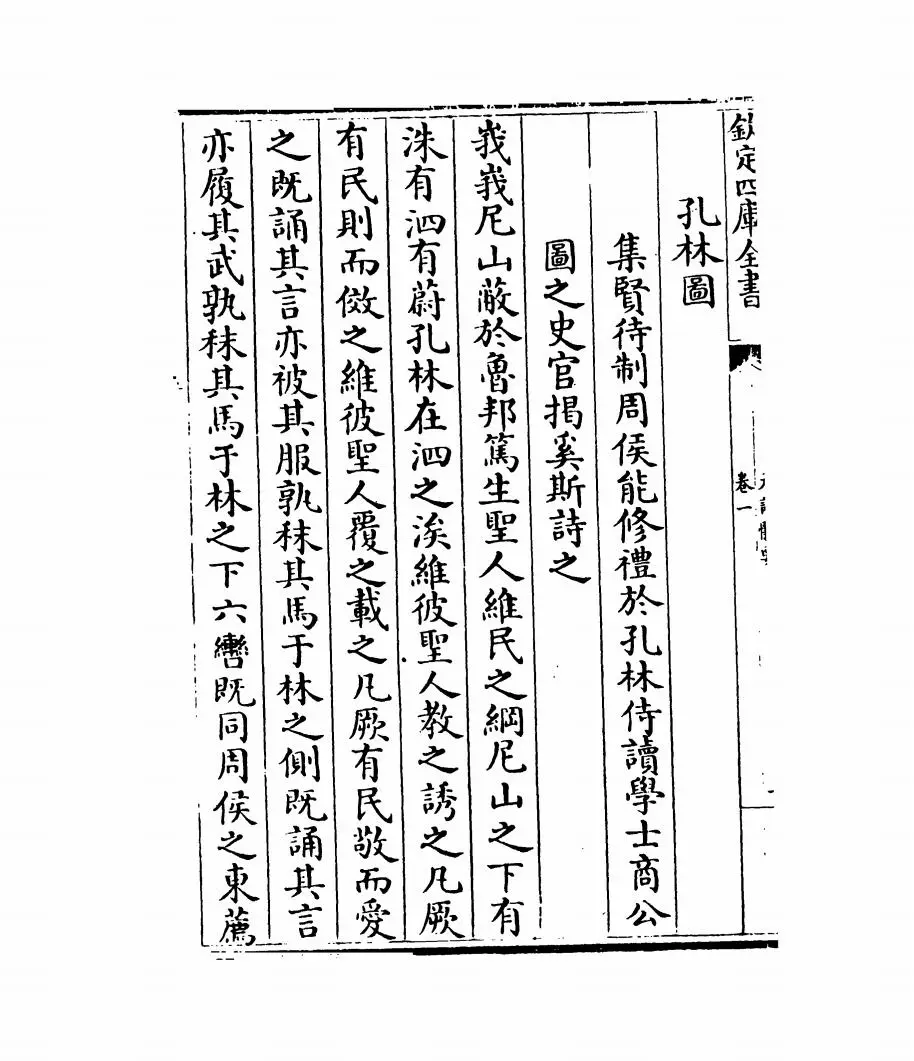 欽定四庫全書
卷一
孔林圖
集賢待制周侯能修禮於孔林侍讀學士商公
圖之史官揭奚斯詩之
峩峩尼山蔽於魯邦篤生聖人維民之綱尼山之下有
洙有泗有蔚孔林在泗之涘維彼聖人教之誘之凡厥
有民則而傚之維彼聖人覆之載之凡厥有民敬而愛
之既誦其言亦被其服孰秣其馬于林之側既誦其言
亦履其武孰秣其馬于林之下六轡既同周侯之東薦